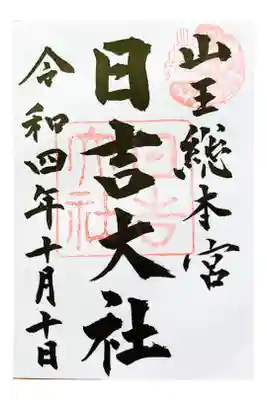 山王総本宮
日吉大社
令和四年十月十日
日吉大社